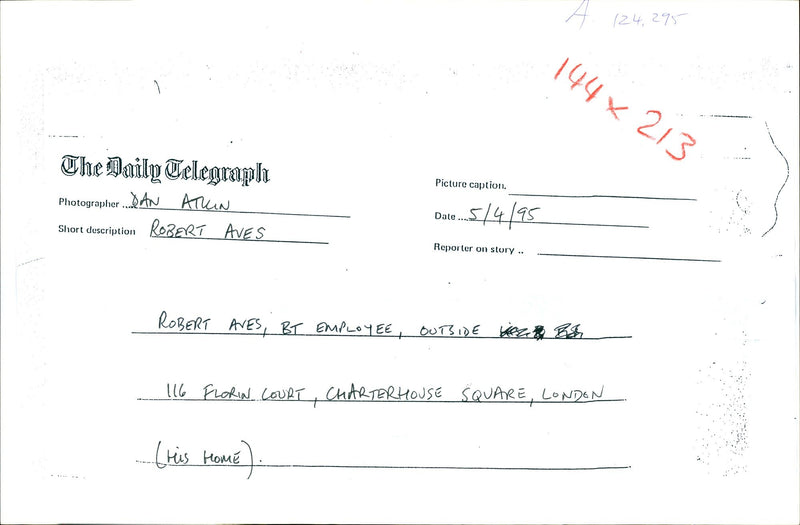 A. 124,295
144 x 213
The Daily Telegraph
Picture caption.
Photographer ....DAN ATKIN
Date ....5/4/95
Short description ROBERT AVES
Reporter on story ..
ROBERT AVES, BT EMPLOYEE, OUTSIDE
116 FLORIN COURT, CHARTERHOUSE SQUARE, LONDON
(HIS HOME).